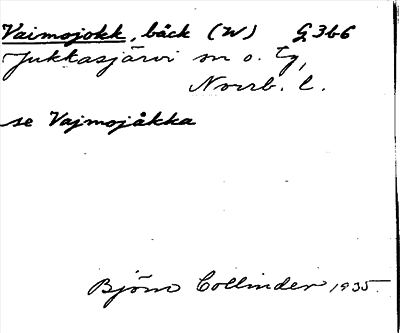 Vaimojokk, bäck (W) G366
Jukkasjärvi sn o. tg,
Norrb. l.
se Vajmojåkka
Björn Collinder 1935.